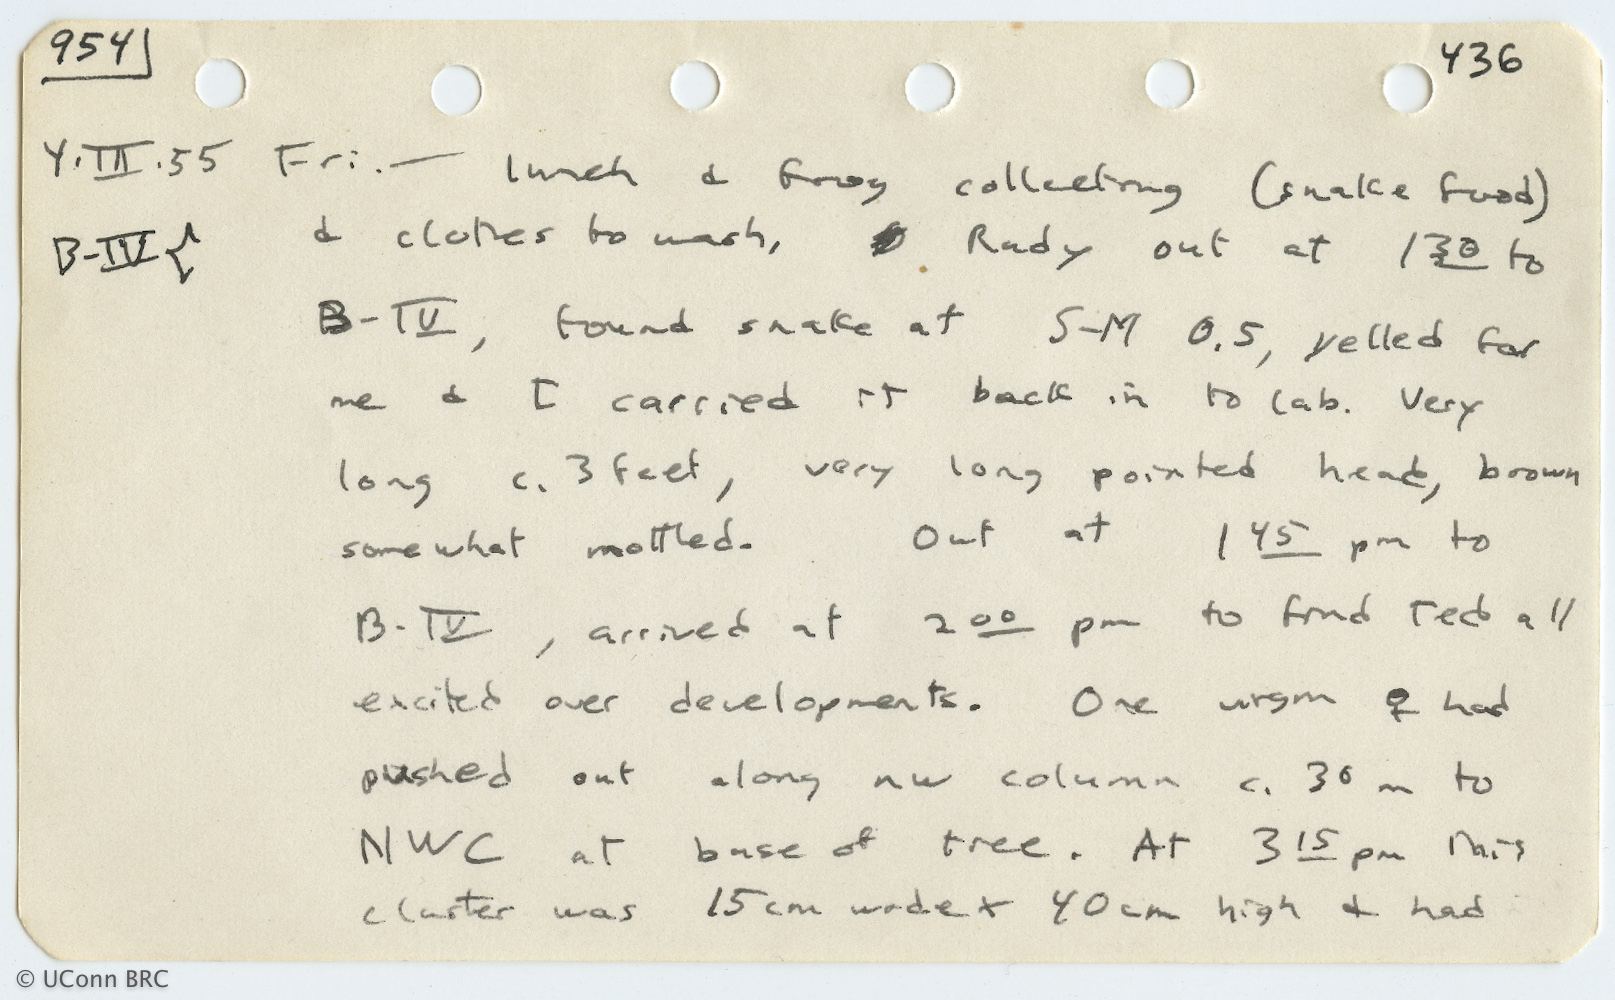 954 436
4.III.55 Fri. — lunch & frog collecting (snake food)
& clothes to wash, Rudy out at 1 30 to
B-IV {
B-IV, found snake at S-M 0.5, yelled for
me & I carried it back in to lab. Very
long c. 3 feet, very long pointed head, brown
somewhat mottled. Out at 1 45 pm to
B-IV, arrived at 2 00 pm to find Ted all
excited over developments. One virgin ♀ had
pushed out along nw column c. 30 m to
NWC at base of tree. At 3 15 pm this
cluster was 15 cm wide x 40 cm high & had
© UConn BRC